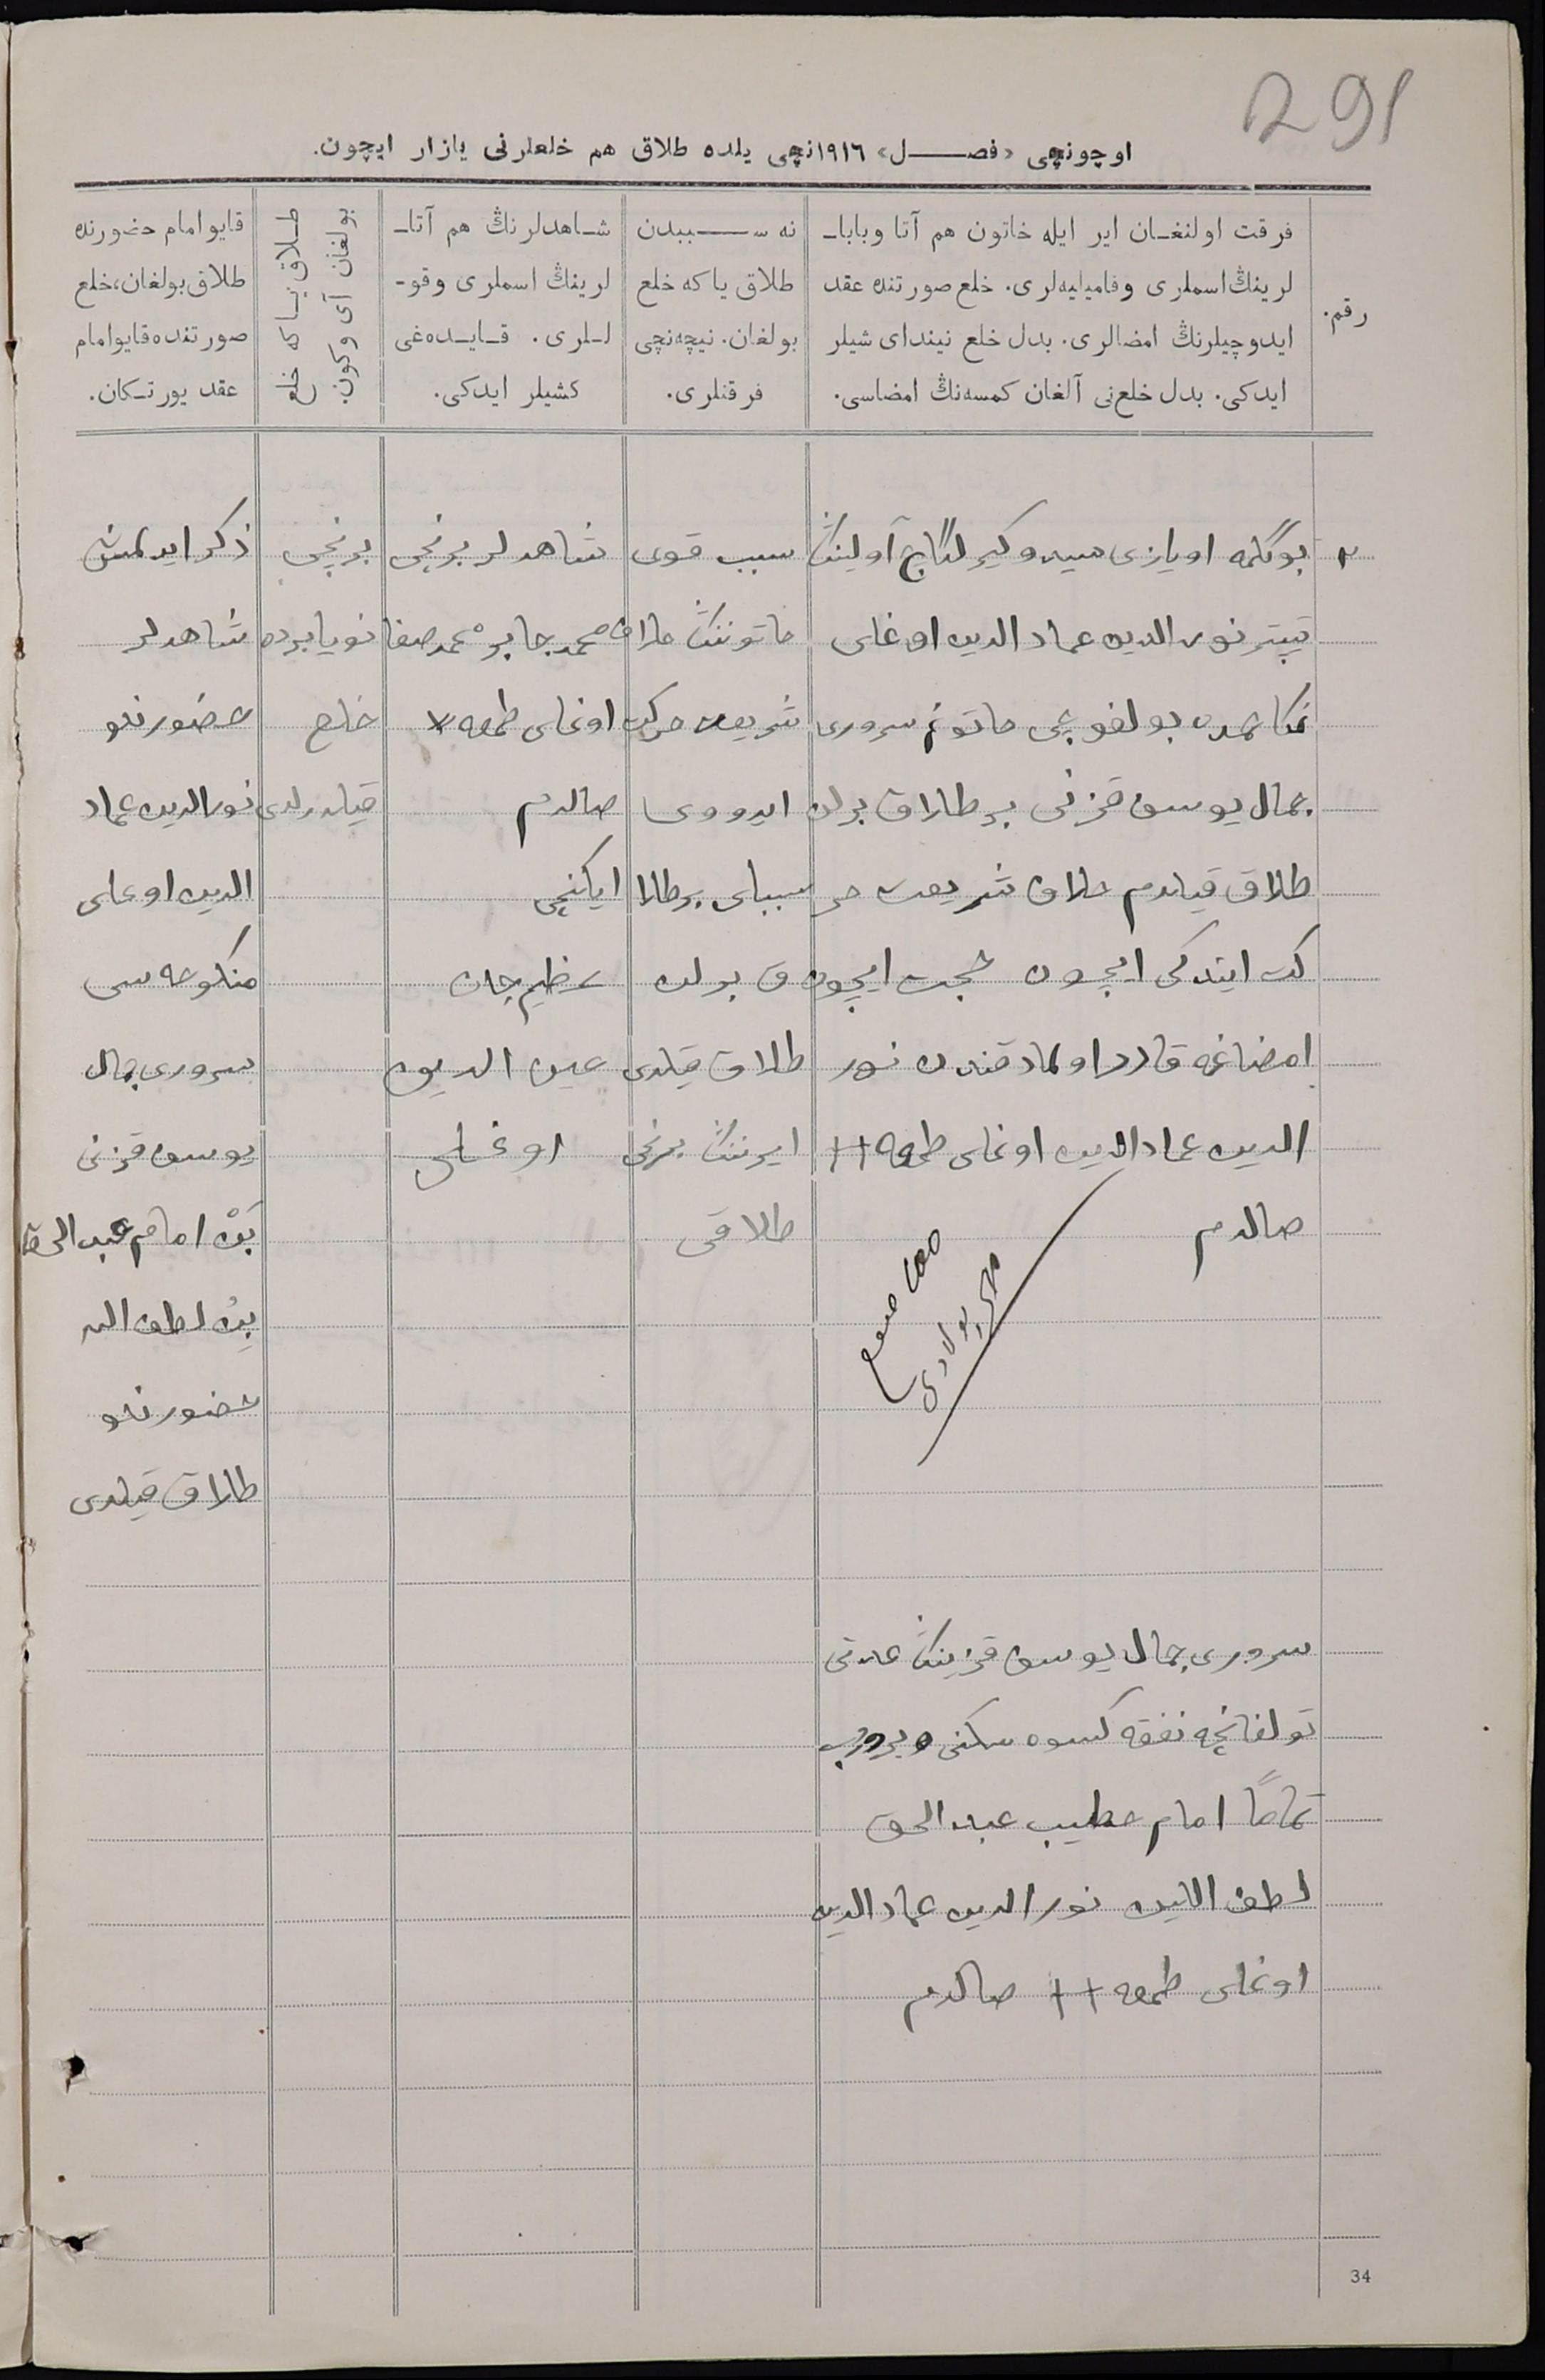 291
اوچونچی «فصل» ۱۹۱٦نچی یلده طلاق هم خلعلرنی یازار ایچون.
رقم.
فرقت اولنغان ایر ایله خاتون هم آتا وبابا-
لرینڭ اسملری وفامیلیه‌لری. خلع صورتنده عقد
ایدوچیلرنڭ امضالری. بدل خلع نیندای شیلر
ایدکی. بدل خلع‌نی آلغان کمسه‌نڭ امضاسی.
نه سببدن
طلاق یاکه خلع
بولغان. نیچه‌نچی
فرقتلری.
شاهدلرنڭ هم آتا-
لرینڭ اسملری وقو-
لـلری. قـایـده‌غی
کشیلر ایدکی.
طلاق یاکه خلع
بولغان آی وکون
قایو امام حضورنده
طلاق بولغان، خلع
صورتنده قایو امام
عقد یورتکان.
۲
بوگلمه اویازی آولینڭ
تیپتر نورالدین عمادالدین اوغلی
نکاحمده بولغوچی خاتونم سروری
جمال یوسف قزنی بر طلاق برله
طلاق قیلدم خلاف شریعت حر
کت ایتدکی ایچون حجت ایچون
امضاغه قادر اولمادقندن نور
الدین عمادالدین اوغلی طمغه ++
صالدم
سبب قوی
خاتوننڭ خلاف
شریعت حرکت
ایدووی
سببلی بر طلا
ق برله
طلاق قیلدی
ایرننڭ برنچی
طلاقی
شاهدلر برنچی
محمدجابر محمدصفا
اوغلی طمغه
صالدم
ایکنچی
عظیم جان
عین الدین
اوغلی
برنچی
نویابرده
خلع
قیلدرلدی
ذکر ایدلمش
شاهدلر
حضورنده
نورالدین عماد
الدین اوغلی
منکوحه سی
سروری جمال
یوسف قزنی
بن امام عبدالحق
بن لطف الله
حضورنده
طلاق قیلدی
سروری جمال یوسف قزینڭ عدتی
تولغانچه نفقه کسوه سکنی ویروب
تماما امام خطیب عبدالحق
لطف اللین نورالدین عمادالدین
اوغلی طمغه ++ صالدم
34